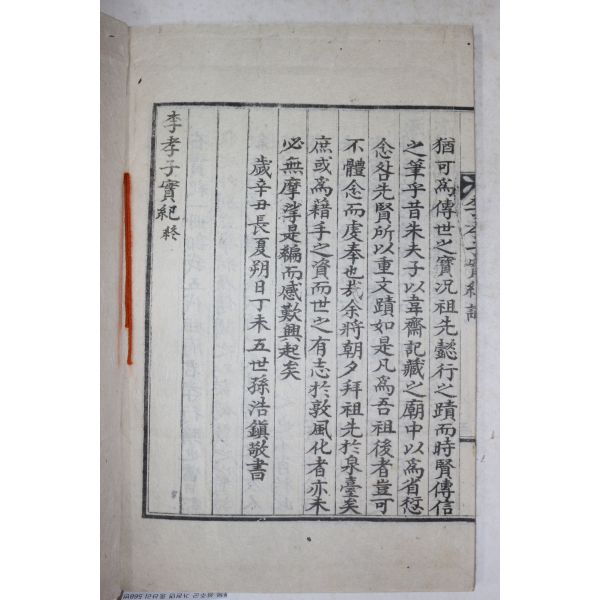 猶可爲傳世之寶況祖先懿行之蹟而時賢傳信
之筆乎昔朱夫子以韋齋記藏之廟中以爲省愆
念咎先賢所以重文蹟如是凡爲吾祖後者豈可
不體念而虔奉也哉余將朝夕拜祖先於泉臺矣
庶或爲藉手之資而世之有志於敦風化者亦未
必無摩挲是編而感歎興起矣
歲辛丑長夏朔日丁未五世孫浩鎭敬書
李孝子實紀終